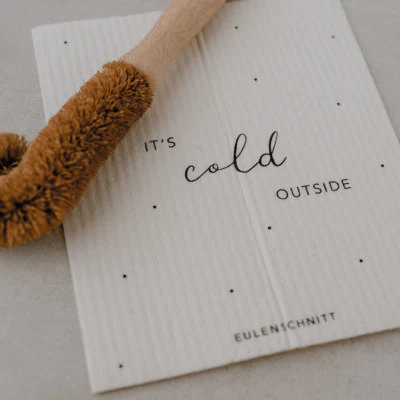 IT'S
cold
OUTSIDE
EULENSCHNITT